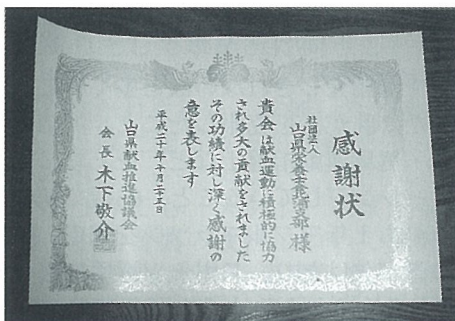 感謝状
社団法人
山口県栄養士会 支部 様
貴会は献血運動に積極的に協力
され多大の貢献をされました
その功績に対し深く感謝の
意を表します
平成二十年十月二十五日
山口県献血推進協議会
会長 木下敬介